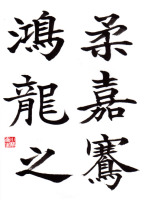 柔嘉騫
鴻龍之